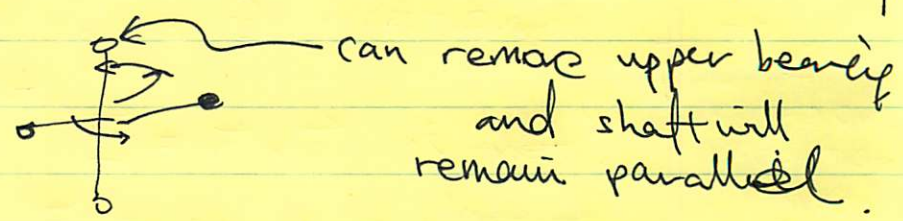 can remove upper bearing
and shaft will
remain parallel.